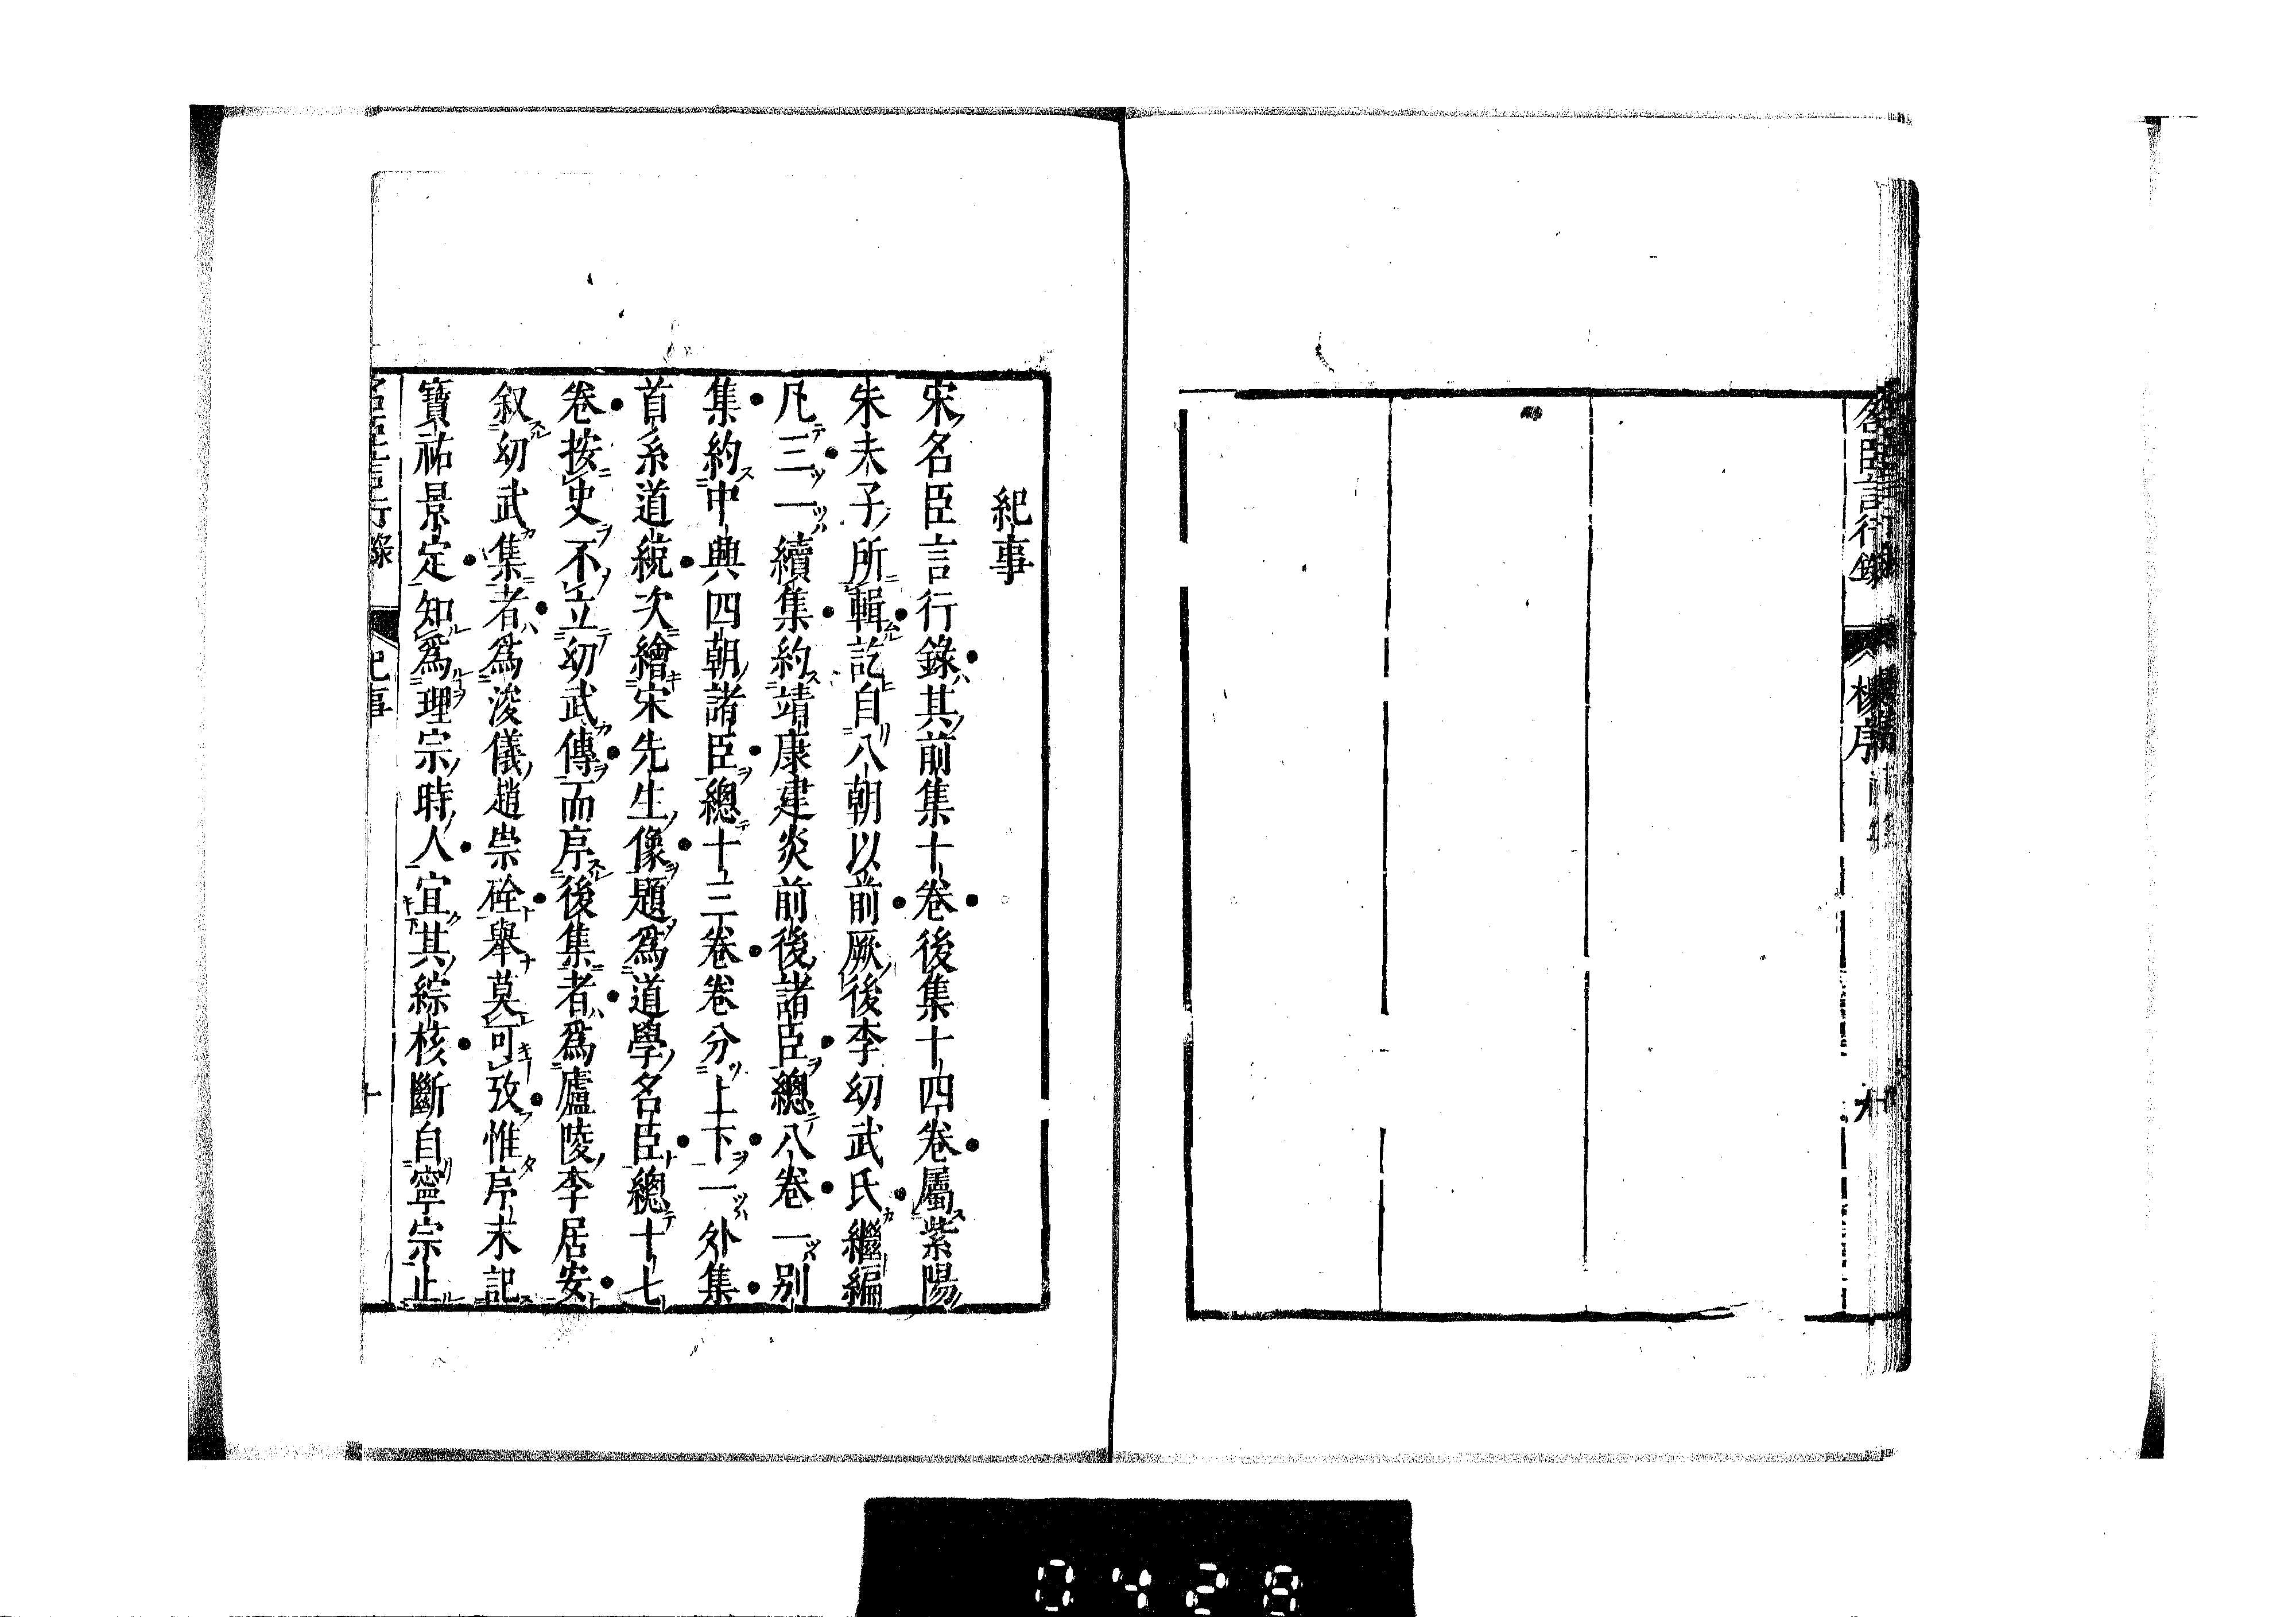 名臣言行錄 楊序 九
紀事
宋名臣言行錄其前集十卷後集十四卷屬紫陽
朱夫子所輯訖自八朝以前厥後李幼武氏繼編
凡三一續集約靖康建炎前後諸臣總八卷一別
集約中興四朝諸臣總十三卷卷分上下一外集
首系道統次繪宋先生像題爲道學名臣總十七
卷按史不立幼武傳而序後集者爲廬陵李居安
叙幼武集者爲浚儀趙崇硂舉莫可攷惟序末記
寶祐景定知爲理宗時人宜其綜核斷自寧宗止
名臣言行錄 紀事 十
0428